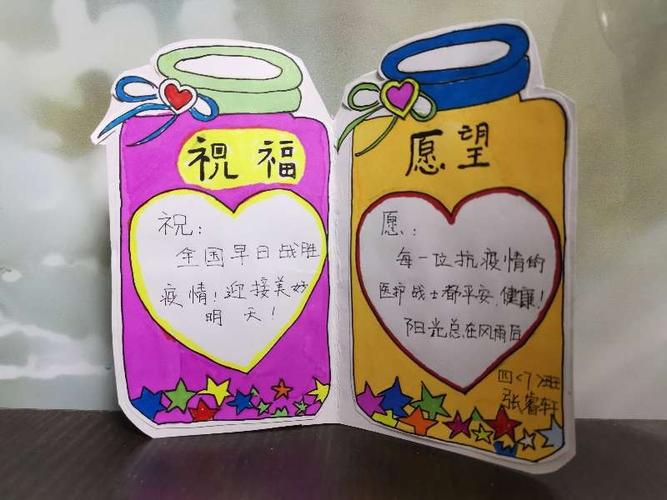 祝福
祝：
全国早日战胜
疫情！迎接美好
明天！
愿望
愿：
每一位抗疫情的
医护战士都平安、健康！
阳光总在风雨后
四〈7〉班
张睿轩